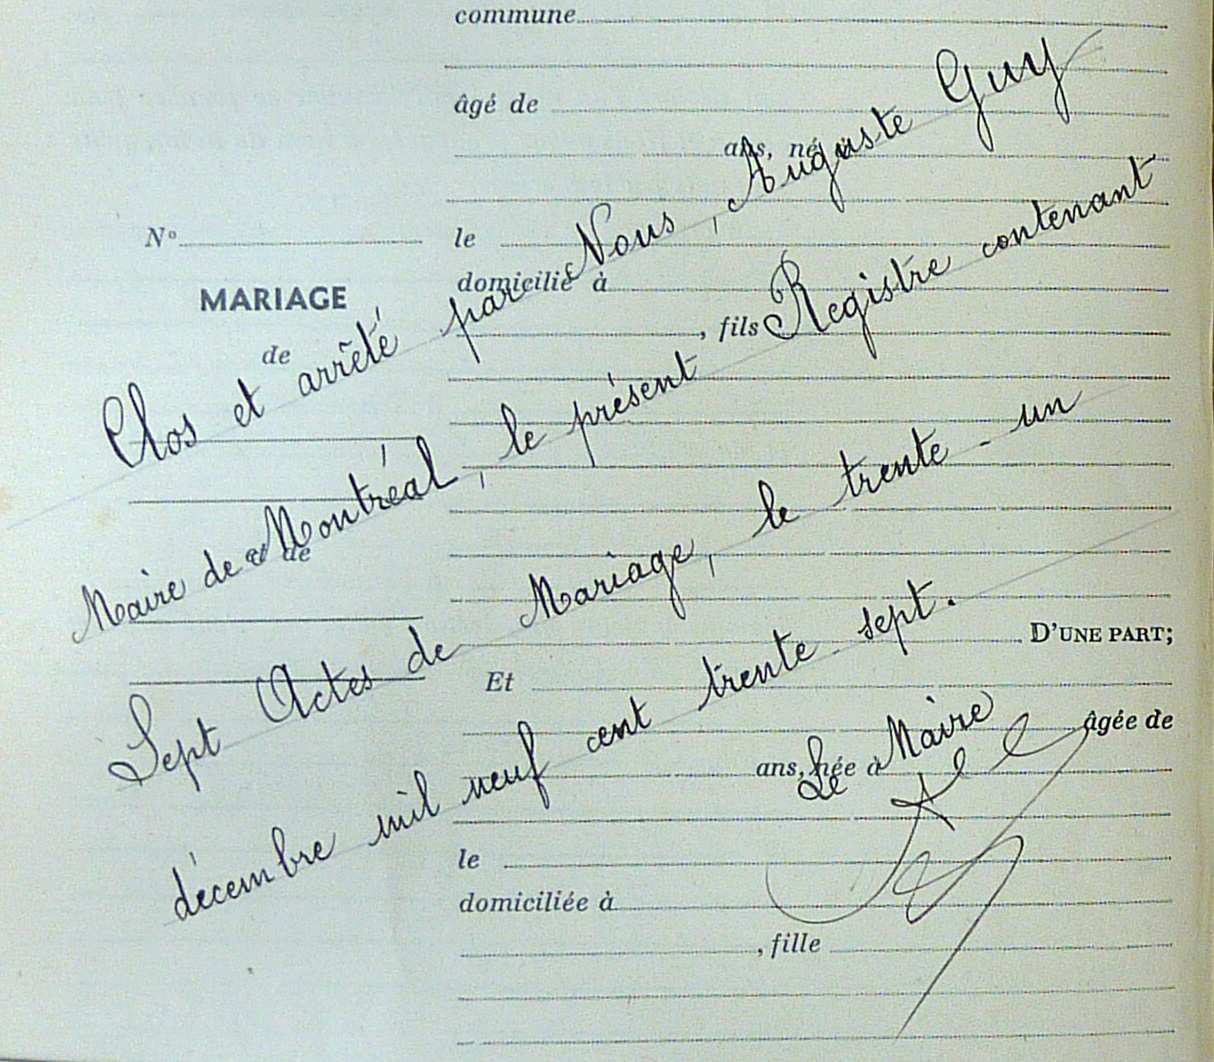 commune
âgé de
ans, né à
N° le
domicilié à
MARIAGE
, fils
de
et de
D'UNE PART;
Et
âgée de
ans, née à
le
domiciliée à
, fille
Clos et arrêté par Nous, Auguste Guy
Maire de Montréal, le présent Registre contenant
Sept Actes de Mariage, le trente-un
décembre mil neuf cent trente sept.
Le Maire